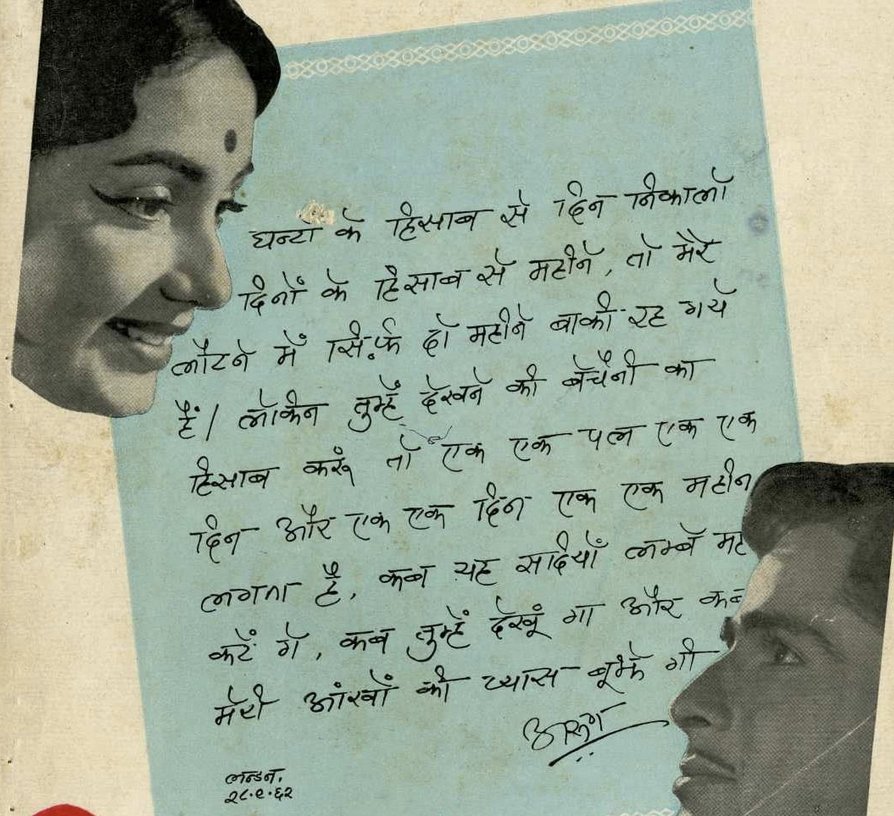 घन्टों के हिसाब से दिन निकालो
दिनों के हिसाब से महीने, तो मेरे
लौटने में सिर्फ दो महीने बाकी रह गये
हैं। लेकिन तुम्हें देखने की बेचैनी का
हिसाब करूं तो एक एक पल एक एक
दिन और एक एक दिन एक एक महीन
लगता है, कब यह सदियों लम्बे मह
कटें गे, कब तुम्हें देखूं गा और कब
मेरी आंखों की प्यास बूझे गी
अरुण
लन्डन.
२८.९.६२